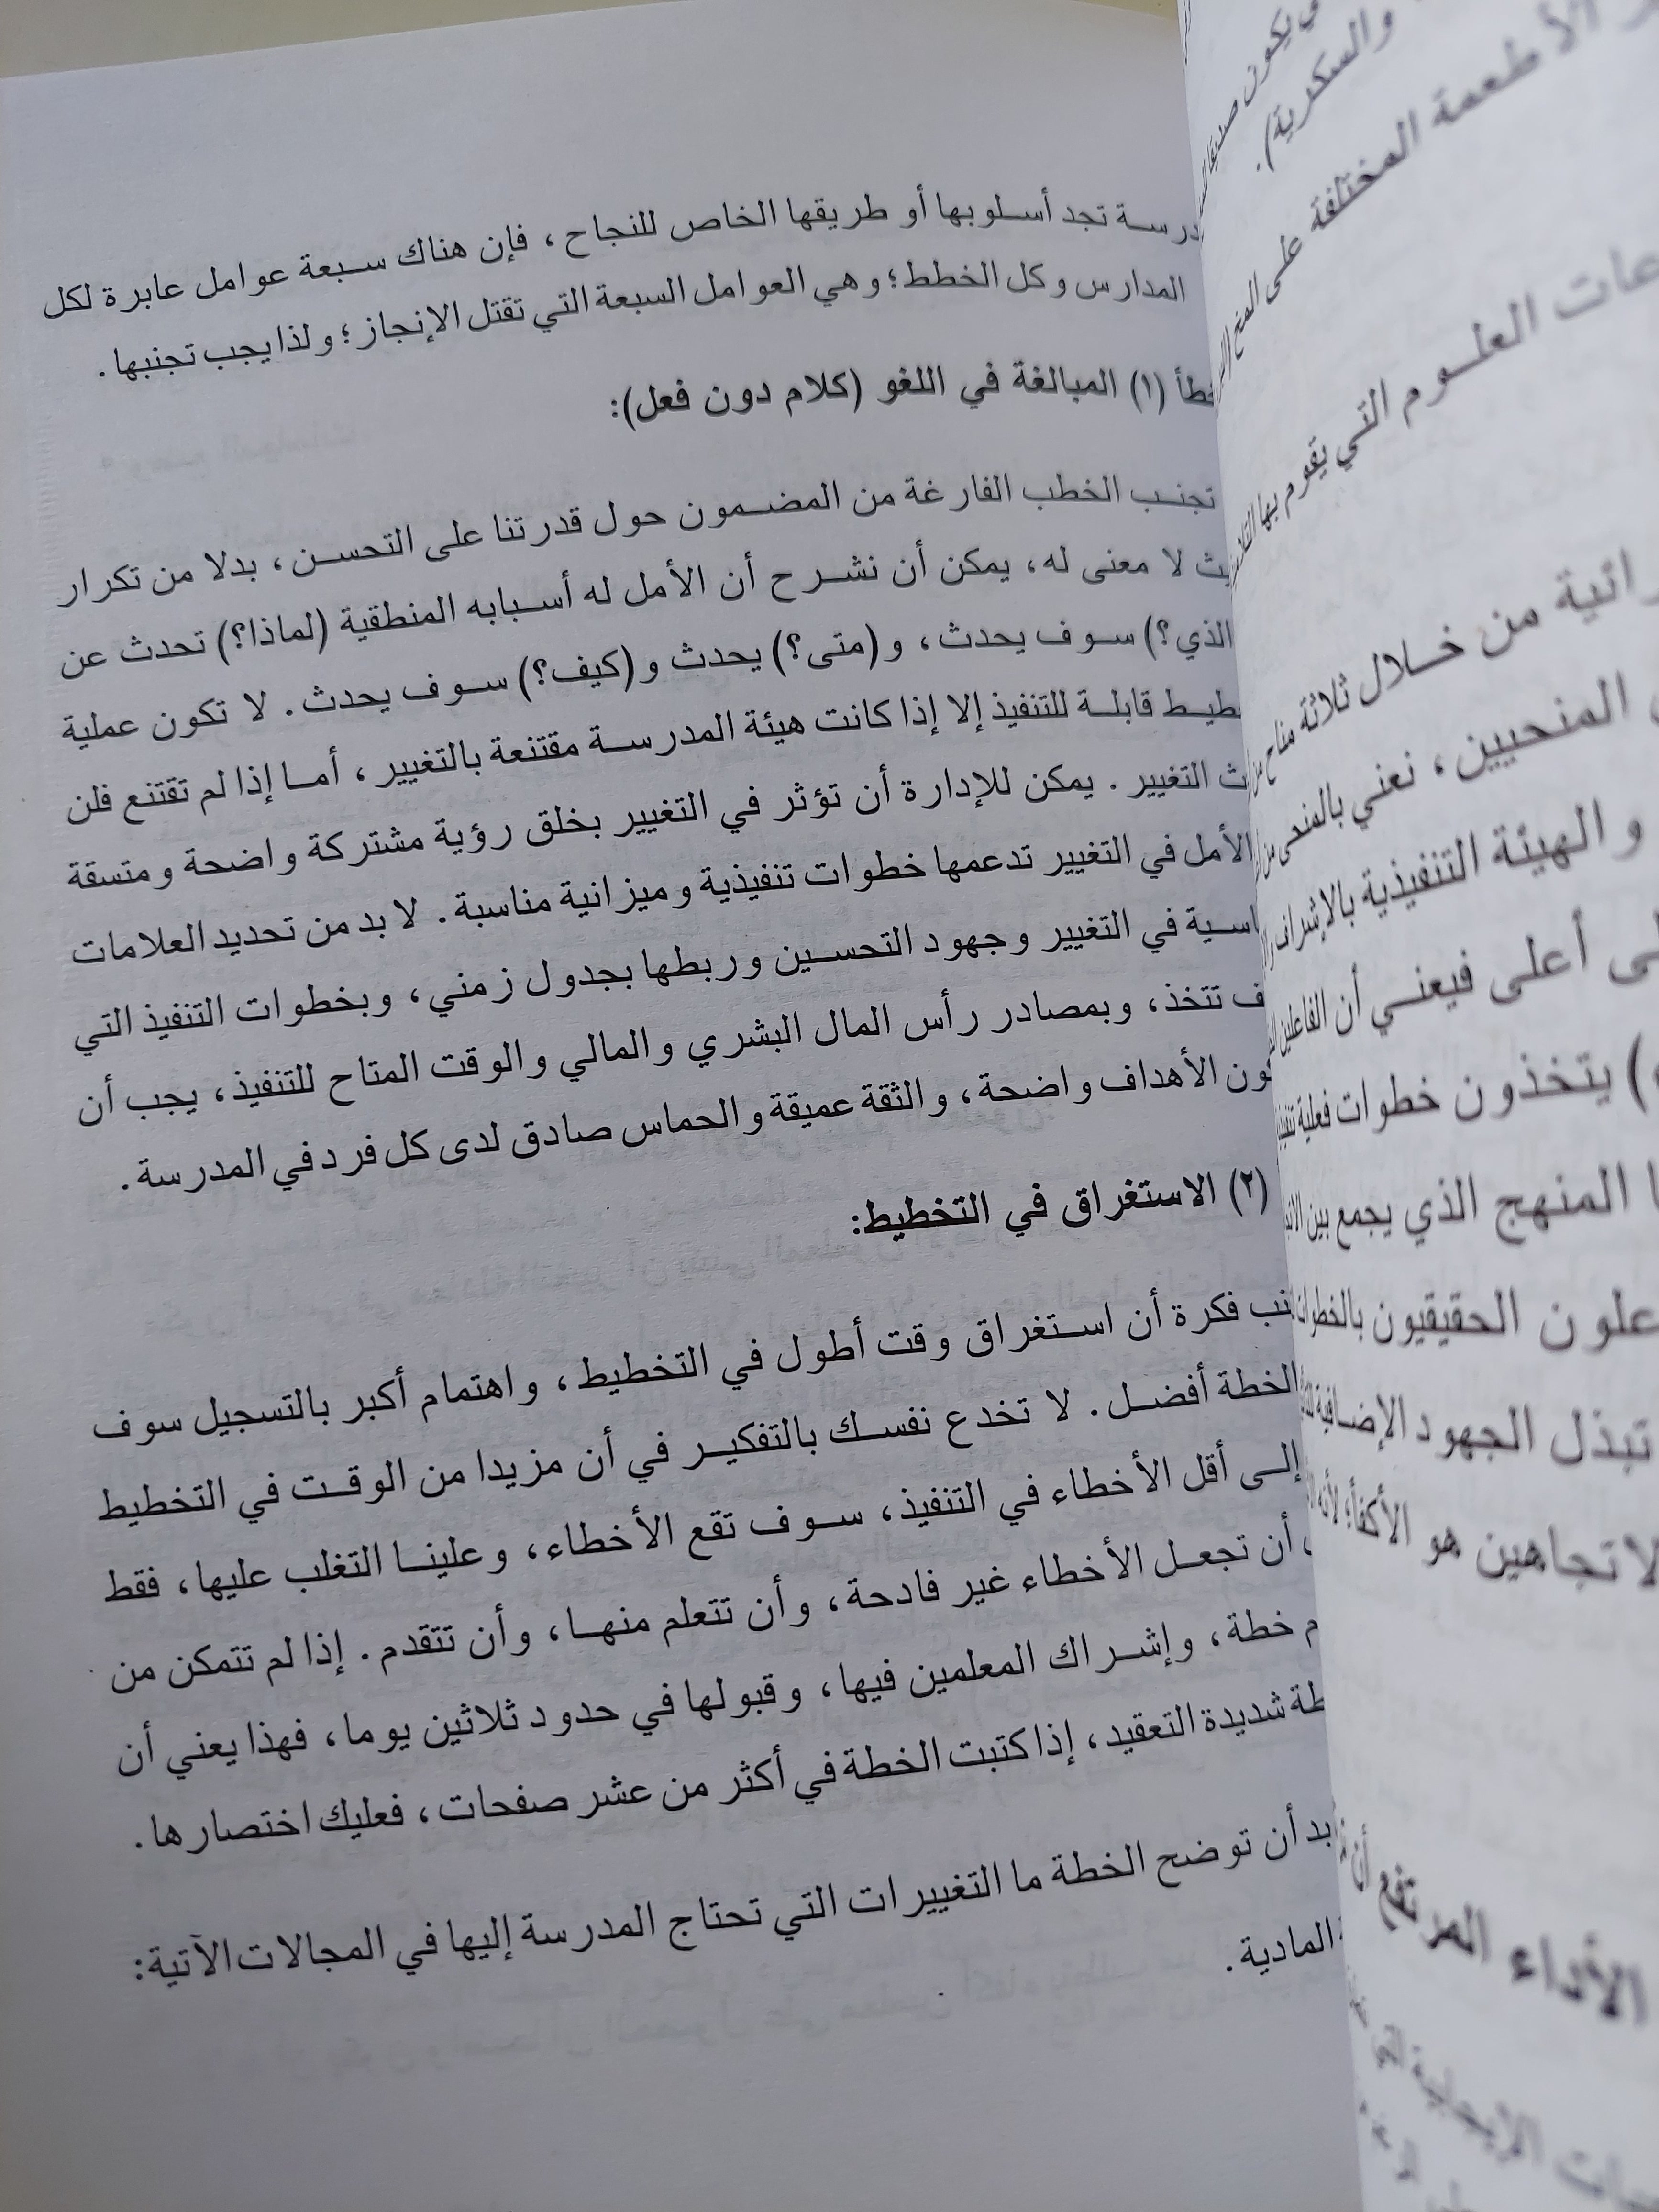 تجد أسلوبها أو طريقها الخاص للنجاح ، فإن هناك سبعة عوامل عابرة لكل
المدارس وكل الخطط؛ وهي العوامل السبعة التي تقتل الإنجاز؛ ولذا يجب تجنبها.
(١) المبالغة في اللغو (كلام دون فعل):
تجنب الخطب الفارغة من المضمون حول قدرتنا على التحسن، بدلا من تكرار
لا معنى له، يمكن أن نشرح أن الأمل له أسبابه المنطقية (لماذا؟) تحدث عن
الذي؟) سوف يحدث، و(متى؟) يحدث و(كيف؟) سوف يحدث. لا تكون عملية
قابلة للتنفيذ إلا إذا كانت هيئة المدرسة مقتنعة بالتغيير، أما إذا لم تقتنع فلن
التغيير. يمكن للإدارة أن تؤثر في التغيير بخلق رؤية مشتركة واضحة ومتسقة
الأمل في التغيير تدعمها خطوات تنفيذية وميزانية مناسبة. لا بد من تحديد العلامات
في التغيير وجهود التحسين وربطها بجدول زمني، وبخطوات التنفيذ التي
تتخذ، وبمصادر رأس المال البشري والمالي والوقت المتاح للتنفيذ، يجب أن
الأهداف واضحة، والثقة عميقة والحماس صادق لدى كل فرد في المدرسة.
(٢) الاستغراق في التخطيط:
فكرة أن استغراق وقت أطول في التخطيط، واهتمام أكبر بالتسجيل سوف
الخطة أفضل. لا تخدع نفسك بالتفكير في أن مزيدا من الوقت في التخطيط
إلى أقل الأخطاء في التنفيذ، سوف تقع الأخطاء، وعلينا التغلب عليها، فقط
أن تجعل الأخطاء غير فادحة، وأن تتعلم منها، وأن تتقدم. إذا لم تتمكن من
خطة، وإشراك المعلمين فيها، وقبولها في حدود ثلاثين يوما، فهذا يعني أن
شديدة التعقيد، إذا كتبت الخطة في أكثر من عشر صفحات، فعليك اختصارها.
أن توضح الخطة ما التغييرات التي تحتاج المدرسة إليها في المجالات الآتية:
المادية.
والسكرية).
الأطعمة المختلفة على المخ
العلوم التي يقوم بها
من خلال ثلاثة مناح
المنحيين، نعني بالمنحى من
والهيئة التنفيذية بالإشراف
أعلى فيعني أن الفاعلين
يتخذون خطوات فعلية
المنهج الذي يجمع بين
الحقيقيون بالخطوات
تبذل الجهود الإضافية
هو الأكفأ؛ لأنه
الأداء المرتفع